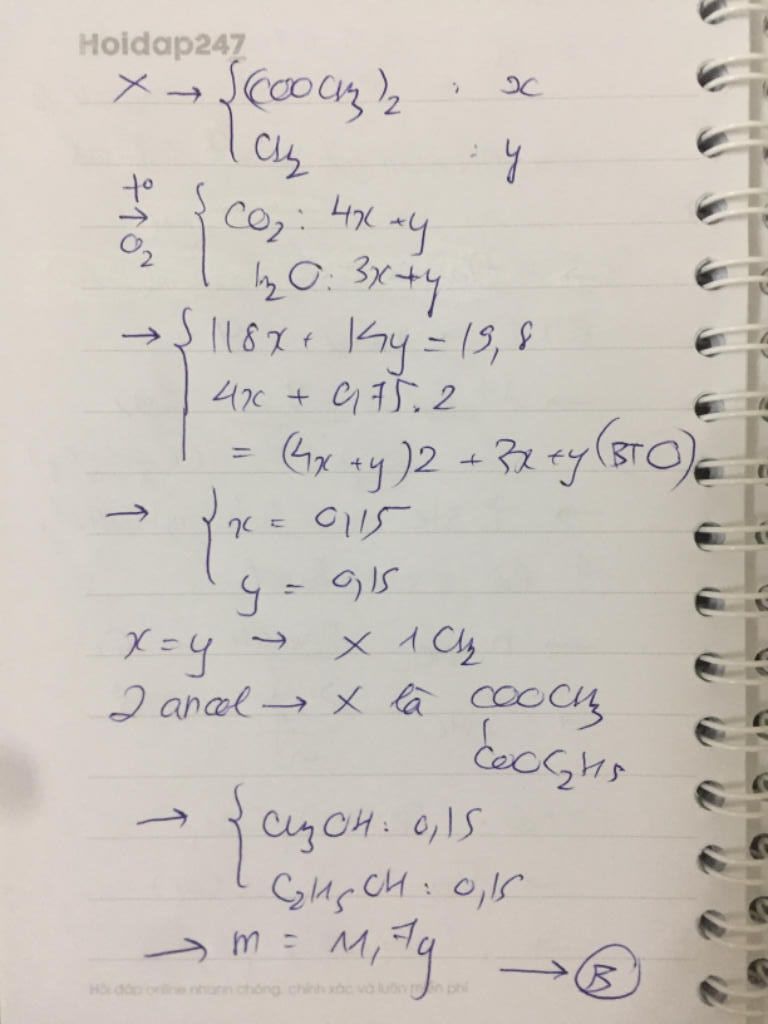 Hoidap247
X → { (COOCH3)2 : x
CH2 : y
t° → O2 { CO2 : 4x + y
H2O : 3x + y
→ { 118x + 14y = 19,8
4x + 0,75.2
= (4x + y)2 + 3x + y (BTO)
→ { x = 0,15
y = 0,15
x = y → X 1 CH2
2 ancol → X là COOCH3
COOC2H5
→ { CH3OH : 0,15
C2H5OH : 0,15
→ m = 11,7g → B
Hỏi đáp online nhanh chóng, chính xác và luôn miễn phí